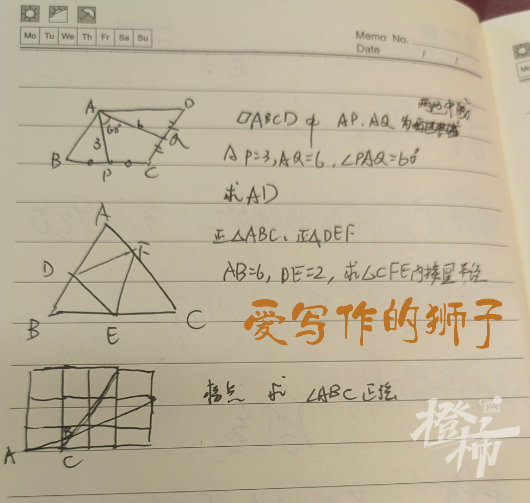 Mo Tu We Th Fr Sa Su
Memo No.
Date / /
A D
60° 6
3 Q
B P C
▱ABCD中 AP、AQ为两边中线
AP=3,AQ=6,∠PAQ=60°
求AD
A
F
D
B E C
正△ABC、正△DEF
AB=6,DE=2,求△CFE内接圆半径
爱写作的狮子
格点 求 ∠ABC正弦
B
A C
橙柿